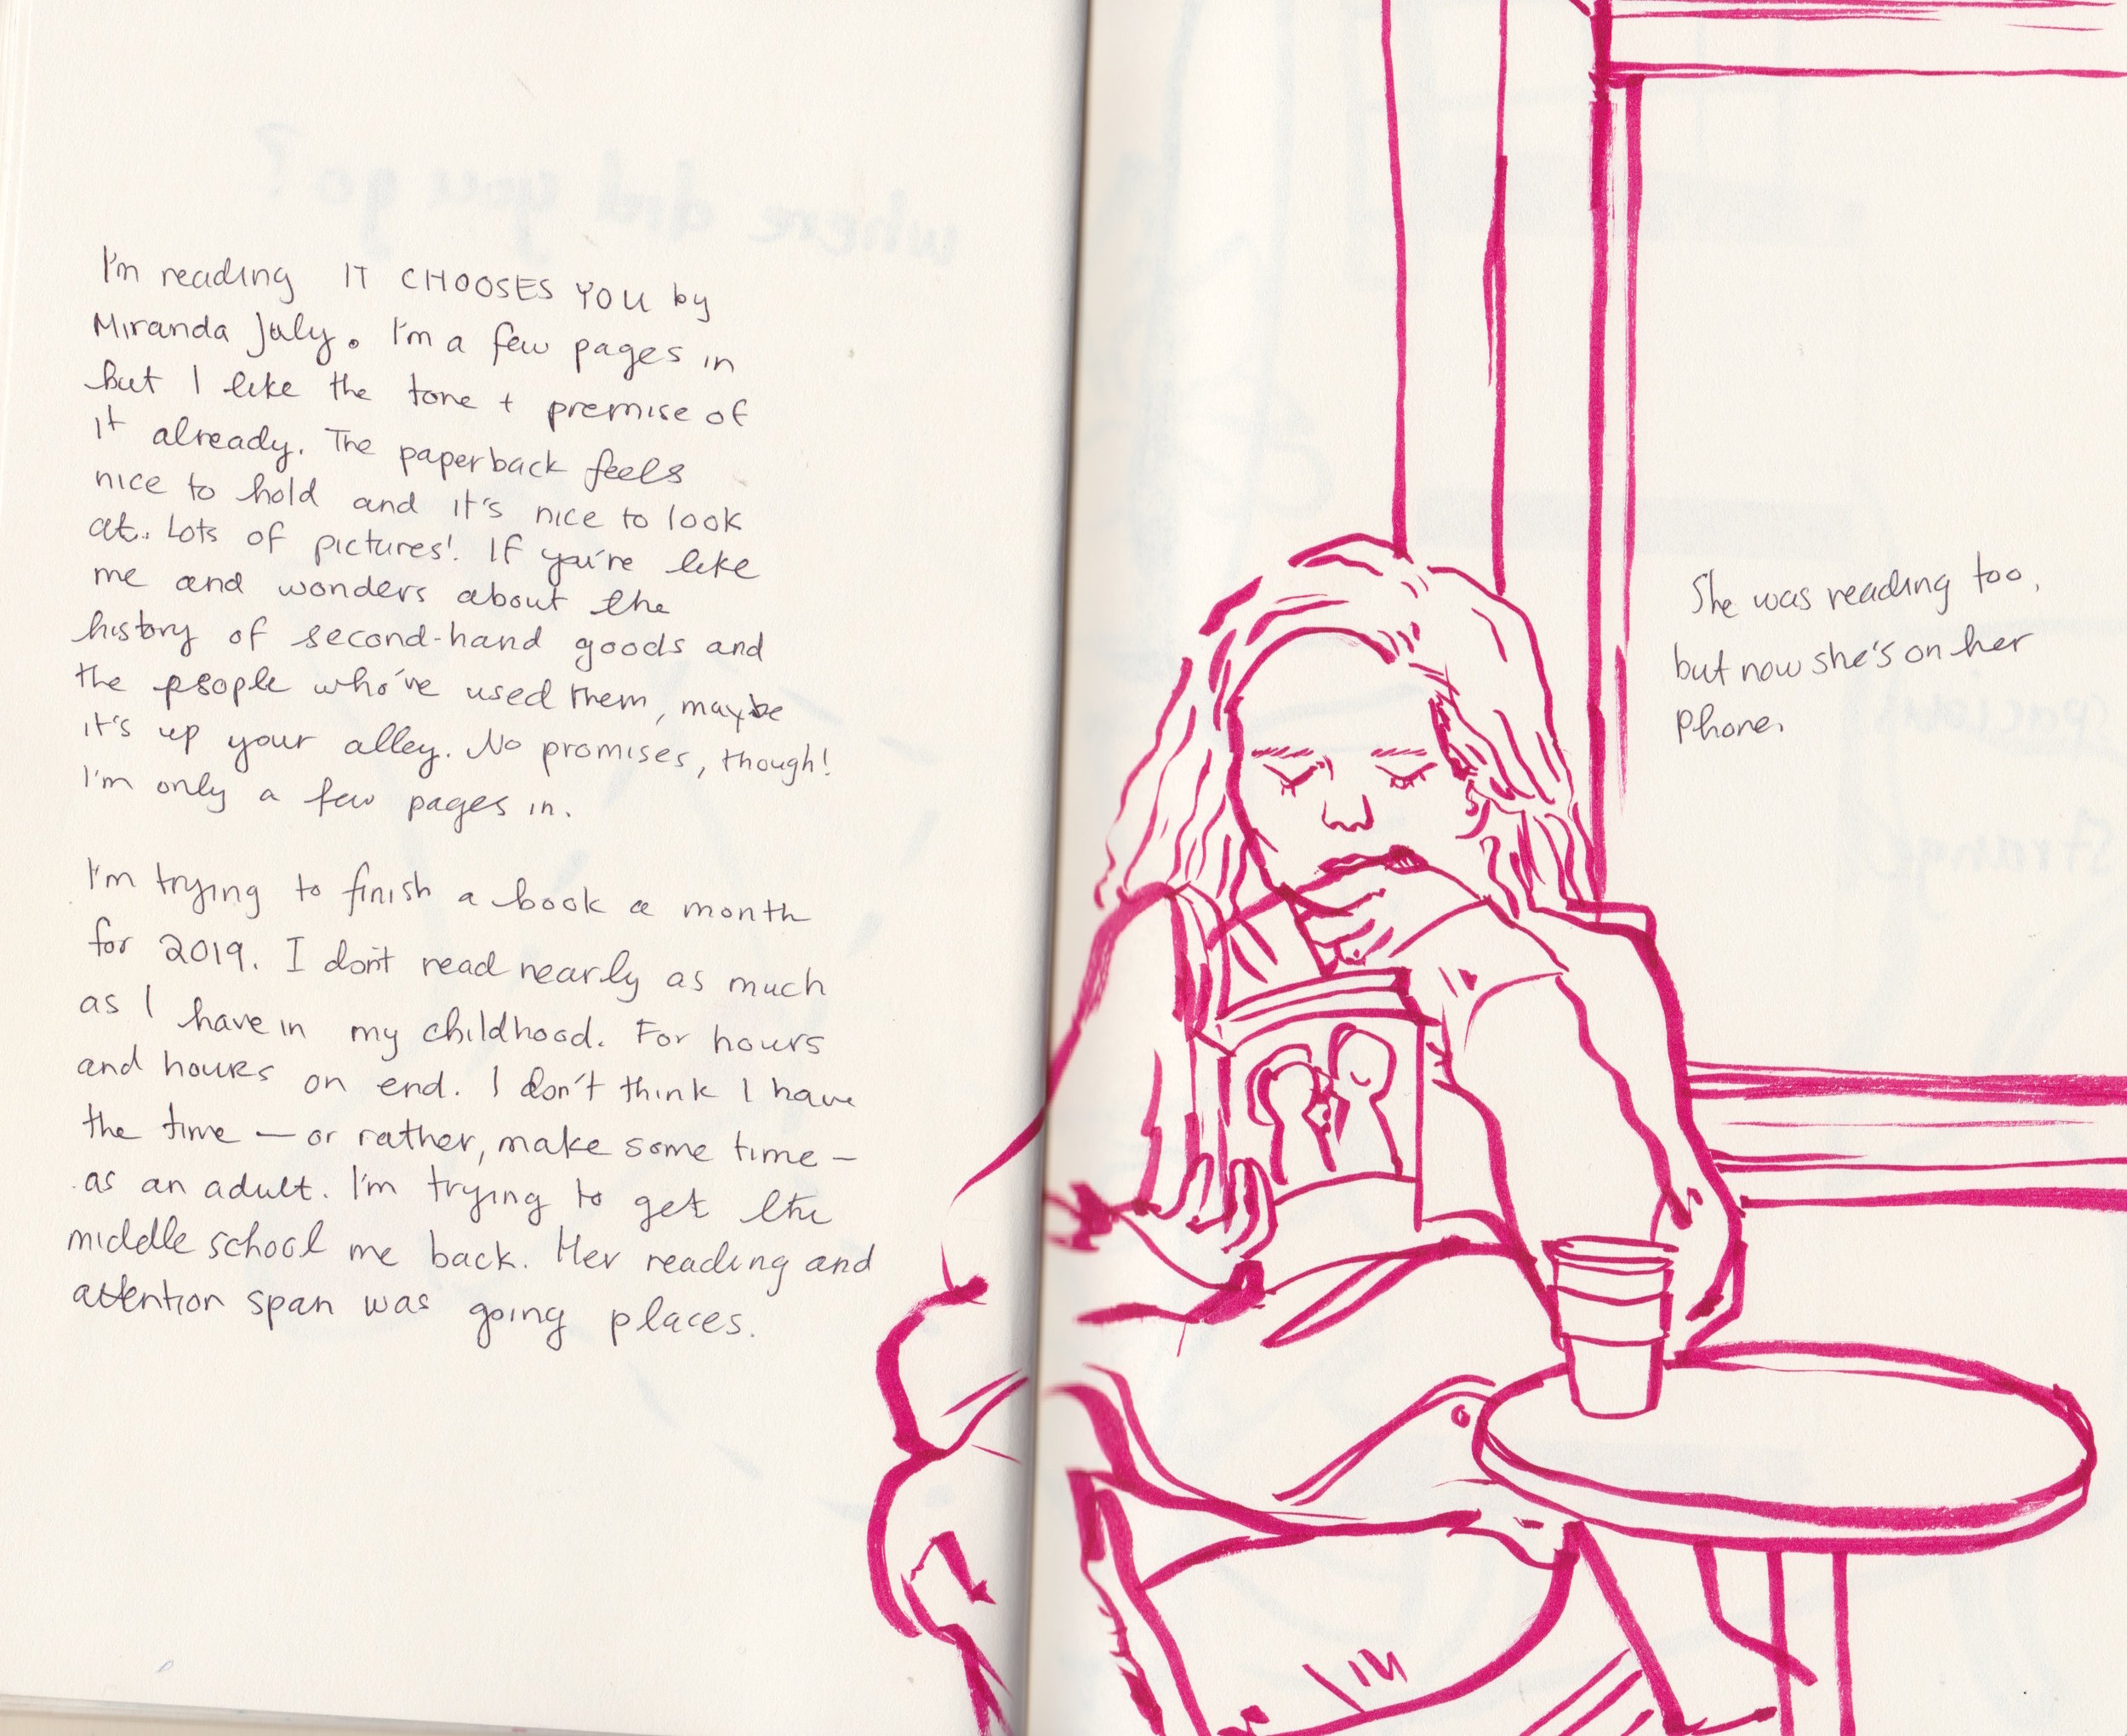 where did you go?
I'm reading IT CHOOSES YOU by
Miranda July. I'm a few pages in
but I like the tone + premise of
it already. The paperback feels
nice to hold and it's nice to look
at. Lots of pictures! If you're like
me and wonders about the
history of second-hand goods and
the people who've used them, maybe
it's up your alley. No promises, though!
I'm only a few pages in.
I'm trying to finish a book a month
for 2019. I don't read nearly as much
as I have in my childhood. For hours
and hours on end. I don't think I have
the time — or rather, make some time —
as an adult. I'm trying to get the
middle school me back. Her reading and
attention span was going places.
She was reading too,
but now she's on her
phone.